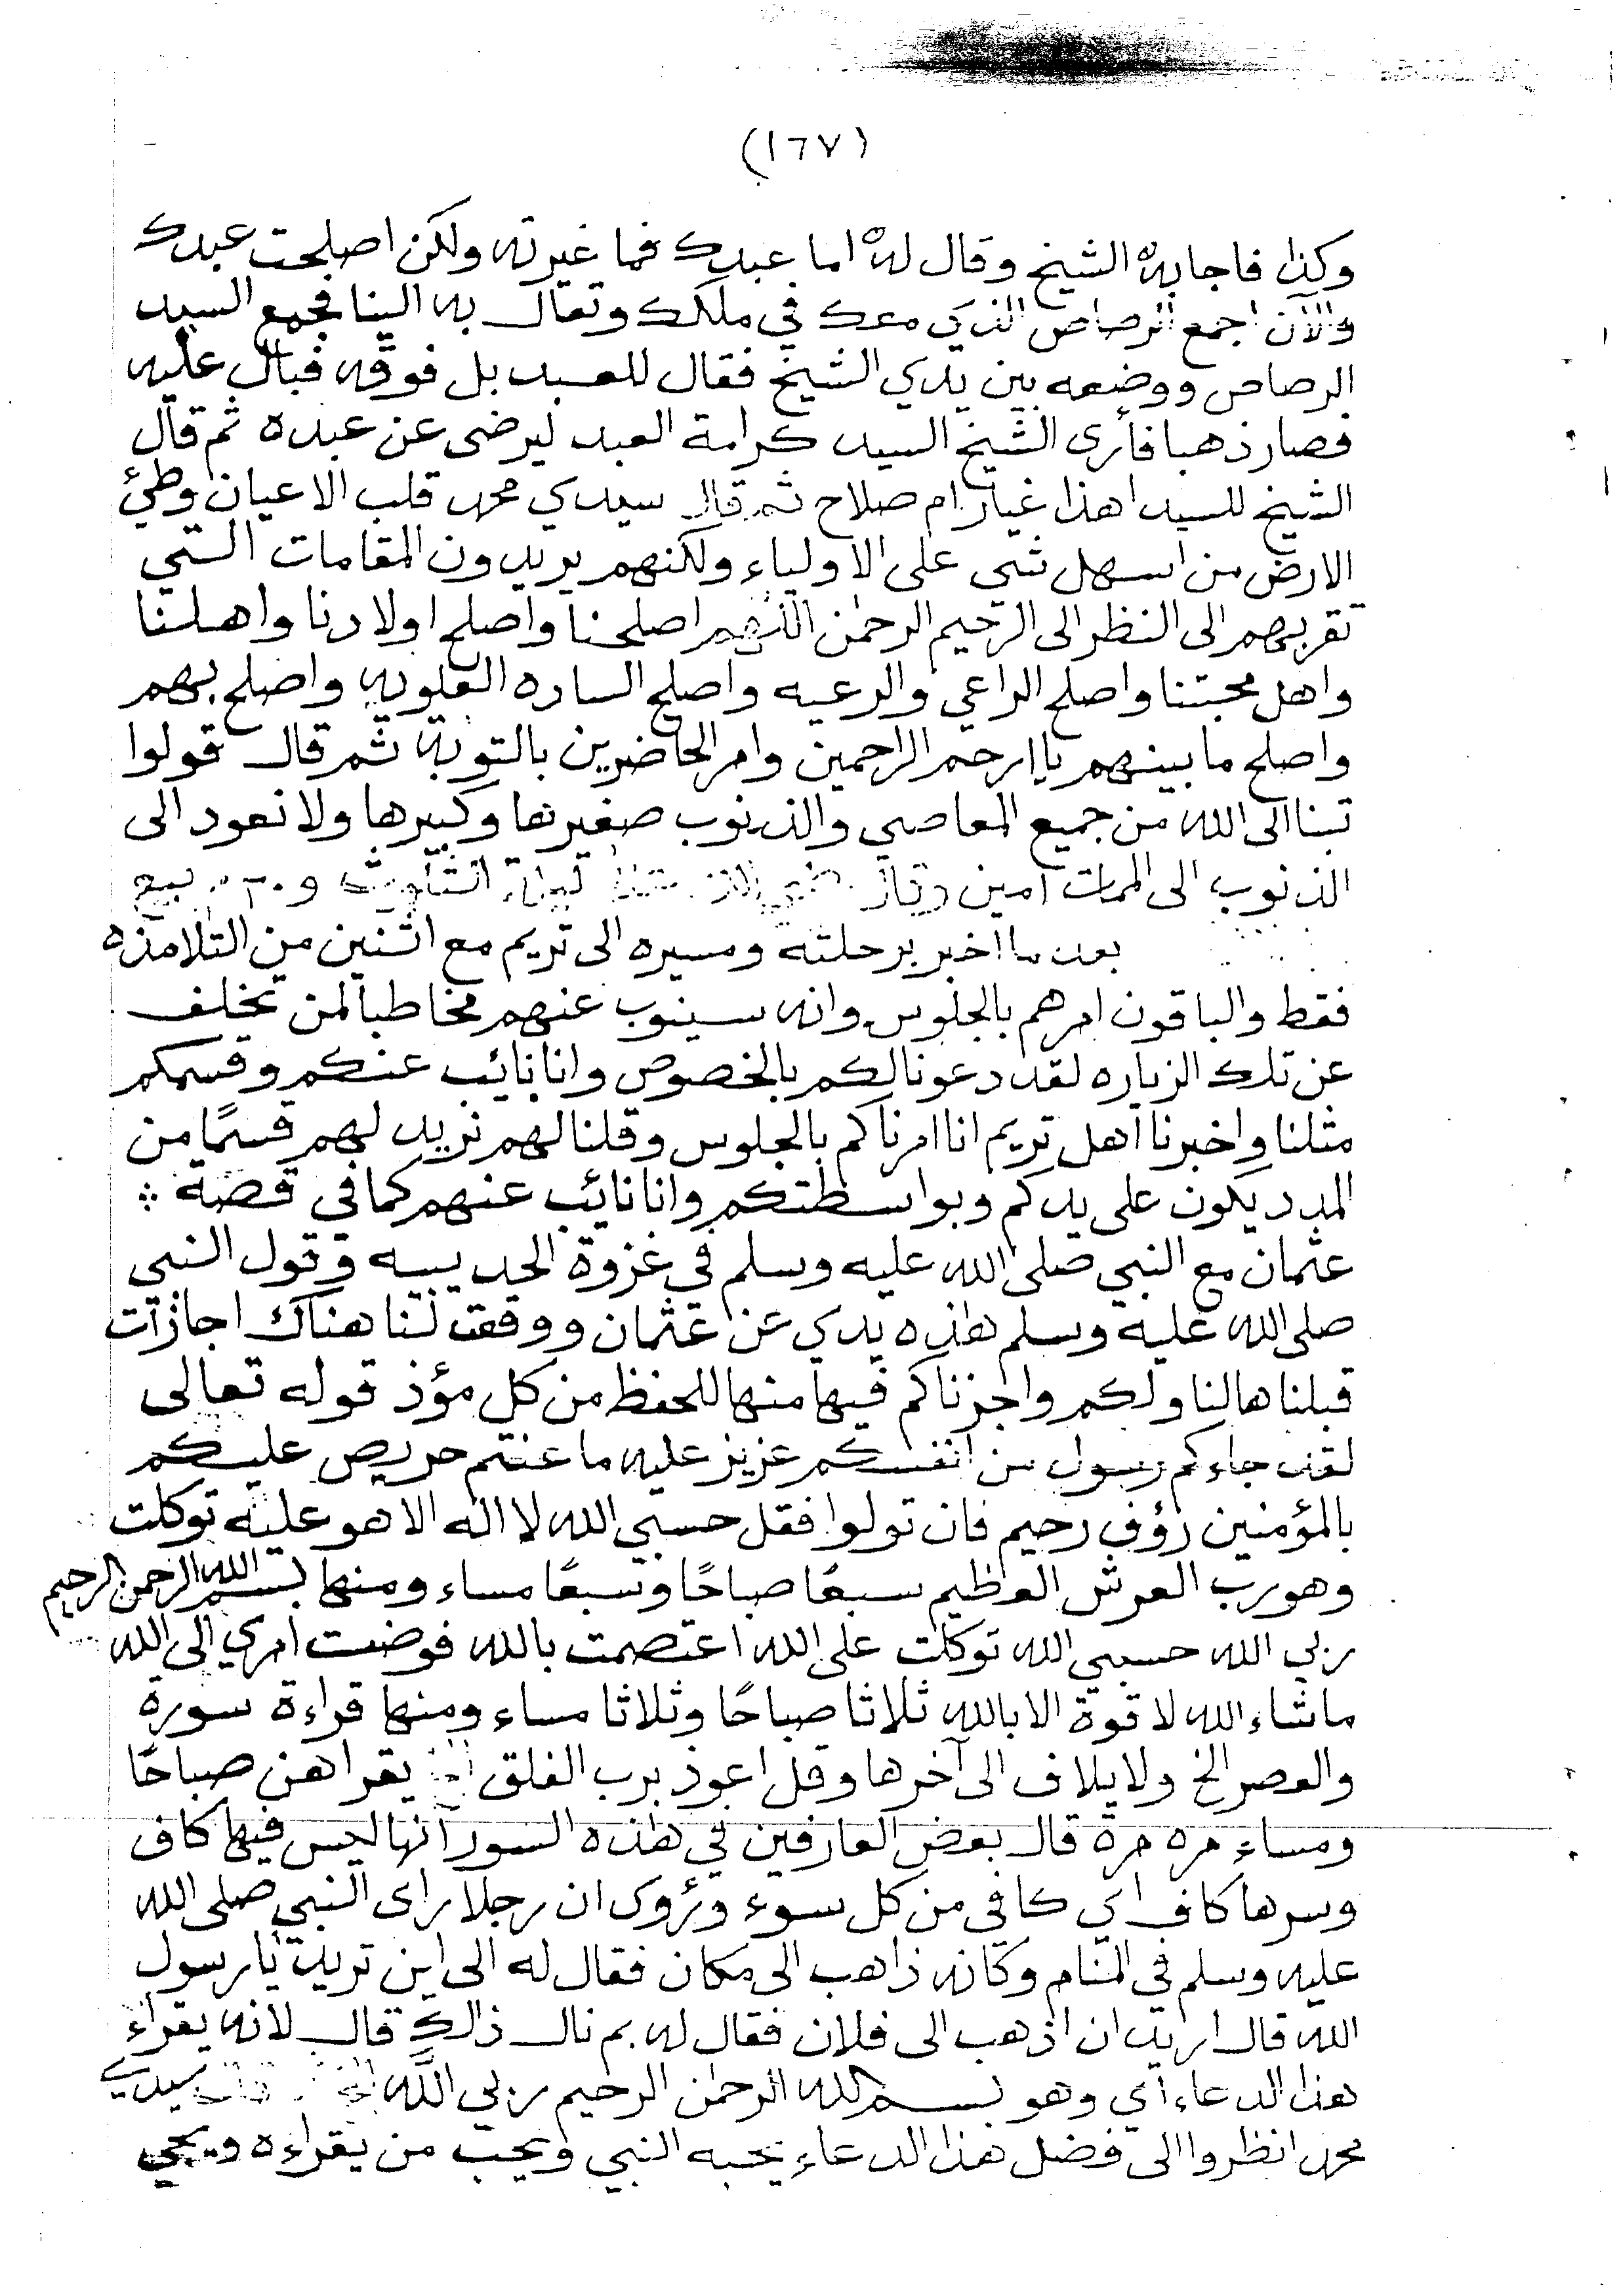 (١٦٧)
وكذا فاجابه الشيخ وقال له اما عبدك فما غيرته ولكن اصلحت عبدك
والآن اجمع الرصاص الذي معك في ملكك وتعال به الينا فجمع السيد
الرصاص ووضعه بين يدي الشيخ فقال للعبد بل فوقه فبال عليه
فصار ذهبا فأرى الشيخ السيد كرامة العبد ليرضى عن عبده ثم قال
الشيخ للسيد اهذا غيار ام صلاح ثم قال سيدي محمد قلب الاعيان وطئ
الارض من اسهل شي على الاولياء ولكنهم يريدون المقامات التي
تقربهم الى النظر الى الرحيم الرحمن اللهم اصلحنا واصلح اولادنا واهلنا
واهل محبتنا واصلح الراعي والرعيه واصلح الساده العلويه واصلح بهم
واصلح ما بينهم يا ارحم الراحمين وامر الحاضرين بالتوبه ثم قال قولوا
تبنا الى الله من جميع المعاصي والذنوب صغيرها وكبيرها ولا نعود الى
الذنوب الى الممات آمين وقال رضي الله عنه ليلة الثلوث و ربيع
بعد ما اخبر برحلته ومسيره الى تريم مع اثنين من التلامذه
فقط والباقون امرهم بالجلوس وانه سينوب عنهم مخاطبا لمن تخلف
عن تلك الزياره لقد دعونا لكم بالخصوص وانا نائب عنكم وقسمكم
مثلنا واخبرنا اهل تريم انا امرناكم بالجلوس وقلنا لهم نريد لهم قسمًا من
المدد يكون على يدكم وبواسطتكم وانا نائب عنهم كما في قصة
عثمان مع النبي صلى الله عليه وسلم في غزوة الحديبيه وقول النبي
صلى الله عليه وسلم هذه يدي عن عثمان ووقعت لنا هناك اجازات
قبلناها لنا ولكم واجزناكم فيها منها للحفظ من كل مؤذ قوله تعالى
لقد جاءكم رسول من انفسكم عزيز عليه ما عنتم حريص عليكم
بالمؤمنين رؤف رحيم فان تولوا فقل حسبي الله لا اله الا هو عليه توكلت
وهو رب العرش العظيم سبعًا صباحًا وسبعًا مساء ومنها بسم الله الرحمن الرحيم
ربي الله حسبي الله توكلت على الله اعتصمت بالله فوضت امري الى الله
ماشاء الله لا قوة الا بالله ثلاثا صباحًا وثلاثا مساء ومنها قراءة سورة
والعصر الخ ولايلاف الى آخرها وقل اعوذ برب الفلق الخ يقراهن صباحًا
ومساء مره مرة قال بعض العارفين في هذه السور انها ليس فيها كاف
وسرها كاف اي كافي من كل سوء وروى ان رجلا راى النبي صلى الله
عليه وسلم في المنام وكانه ذاهب الى مكان فقال له الى اين تريد يا رسول
الله قال اريد ان اذهب الى فلان فقال له بم نال ذالك قال لانه يقراء
هذا الدعاء اي وهو بسم الله الرحمن الرحيم ربي الله الخ قال سيدي
محمد انظروا الى فضل هذا الدعاء يحبه النبي ويحب من يقراءه ويجي